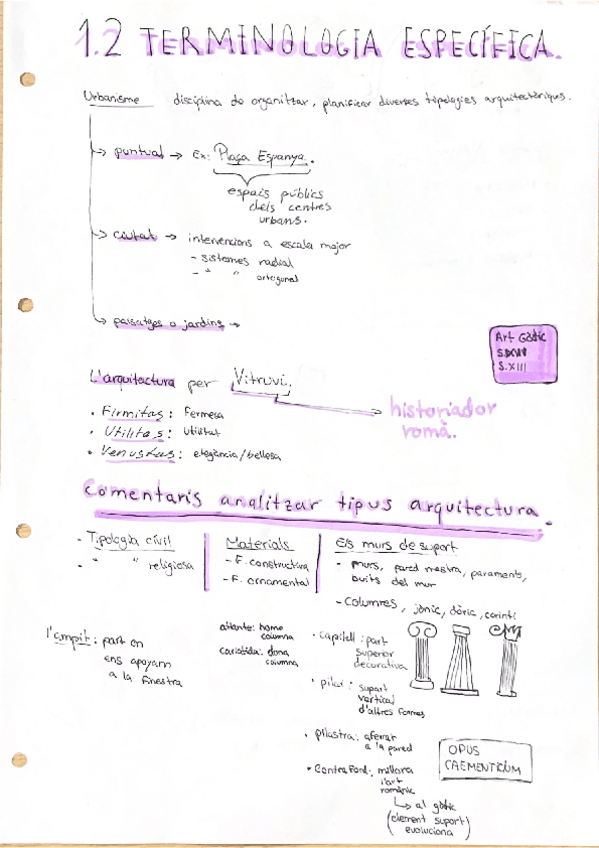 1.2 TERMINOLOGIA ESPECÍFICA.
Urbanisme disciplina de organitzar, planificar diverses tipologies arquitectòniques.
puntual → Ex: Plaça Espanya.
espais públics
dels centres
urbans.
ciutat → intervencions a escala major
- sistemes radial
- " " ortogonal
paisatges o jardins →
Art Gòtic
S.XIII
L'arquitectura per Vitruvi.
historiador
romà.
• Firmitas: Fermesa
• Utilitas: Utilitat
• Venustas: elegància/bellesa
Comentaris analitzar tipus arquitectura.
- Tipologia civil
- " " religiosa
Materials
- F. constructiva
- F. ornamental
Els murs de suport
- murs, pared mestra, paraments,
buits del mur
- Columnes, jònic, dòric, corinti
l'ampit: part on
ens apoyam
a la finestra
atlante: home
columna
cariàtida: dona
columna
• capitell: part
superior
decorativa
• pilar: suport
vertical
d'altres formes
• pilastra: aferrat
a la pared
• Contrafort: millora
l'art
romànic
↳ al gòtic
(element suport)
evoluciona
OPUS
CAEMENTICIUM